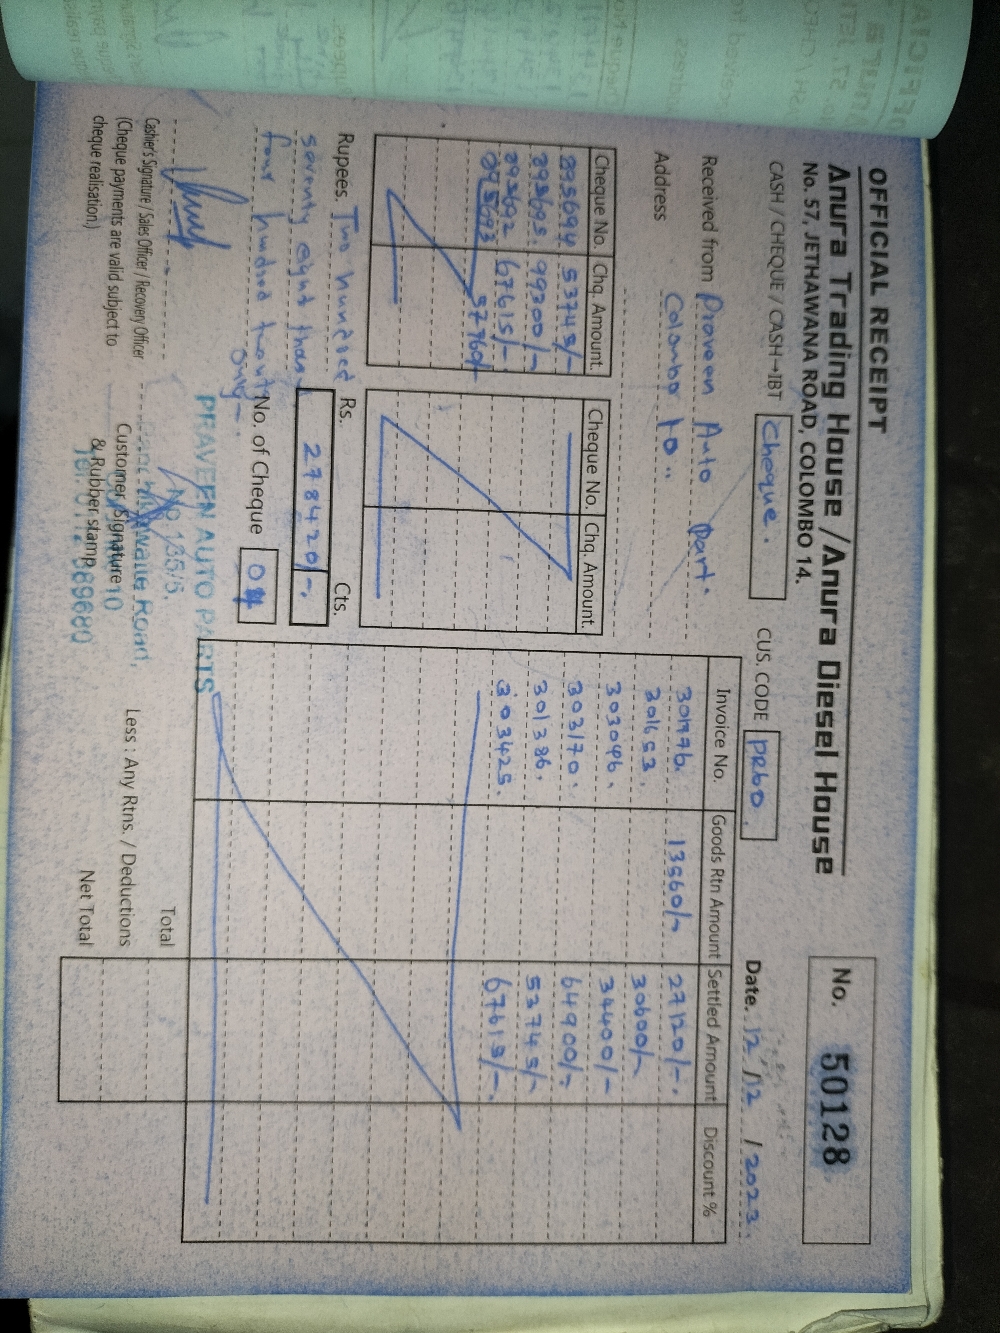 OFFICIAL RECEIPT
Anura Trading House / Anura Diesel House
No. 57, JETHAWANA ROAD, COLOMBO 14.
No. 50128
CASH / CHEQUE / CASH→IBT Cheque.
CUS. CODE PR60
Date. 12 / 12 / 2023
Received from Praveen Auto Part.
Address Colombo 10..
Cheque No. Chq. Amount.
295694 53745/-
293695. 99300/-
293692 67615/-
57760/-
Cheque No. Chq. Amount.
Invoice No. Goods Rtn Amount Settled Amount Discount %
301976. 13560/- 27120/-.
301653. 30600/-
303096. 34400/-
303170. 64900/-
301386. 53745/-
303425. 67615/-.
Rupees. Two hundred
seventy eight thous
four hundred twenty
only-.
Rs. Cts.
278420/-.
No. of Cheque 04
Cashier's Signature / Sales Officer / Recovery Officer
(Cheque payments are valid subject to
cheque realisation.)
PRAVEEN AUTO PARTS
No. 135/5,
Road,
10
Customer Signature
& Rubber stamp
Total
Less : Any Rtns. / Deductions
Net Total